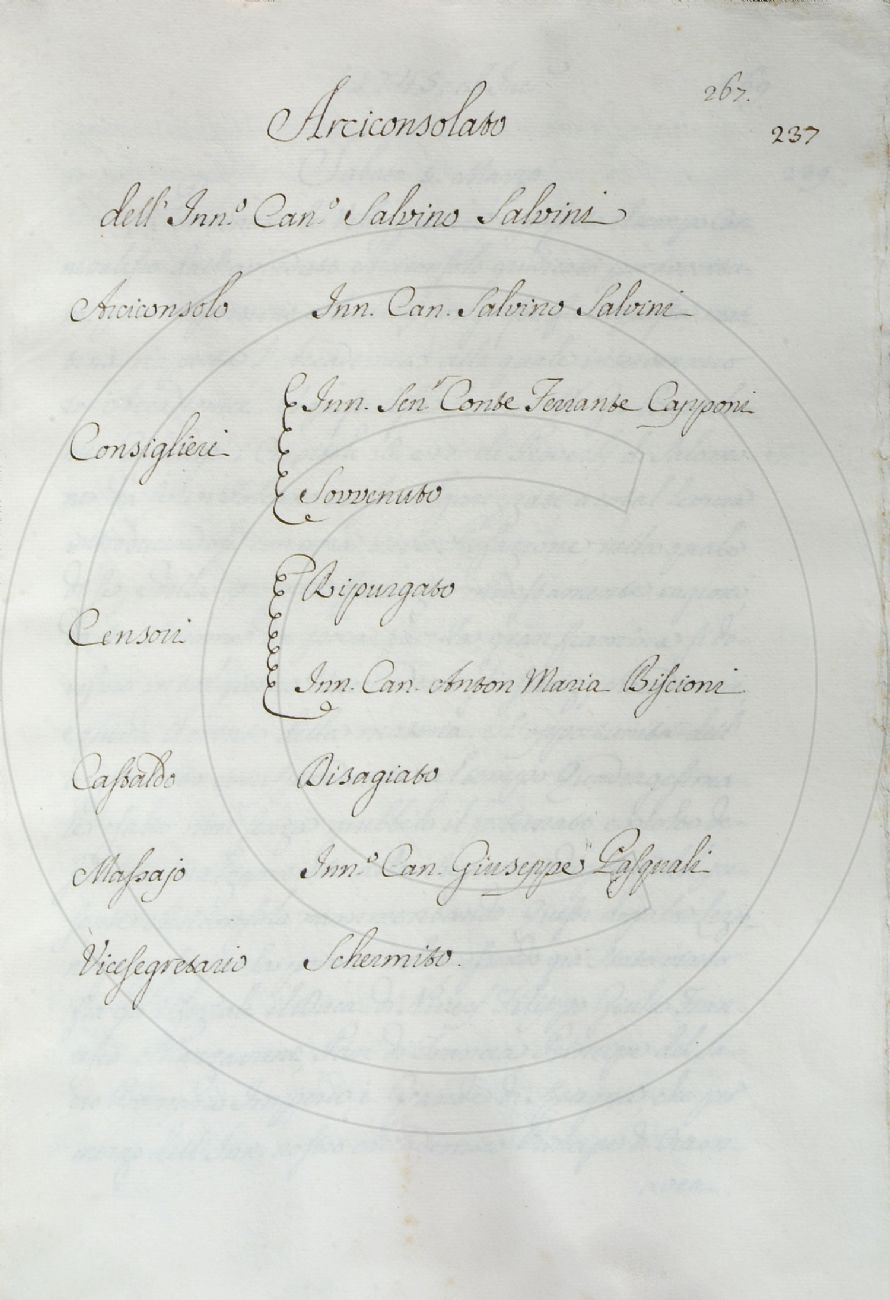 267.
Arciconsolato
237
dell' Inn.º Can.º Salvino Salvini
Arciconsolo Inn. Can. Salvino Salvini
Inn. Sen.r Conte Ferrante Capponi
Consiglieri
Sovvenuto
Ripurgato
Censori
Inn. Can. Anton Maria Biscioni
Castaldo Disagiato
Massajo Inn.º Can. Giuseppe Pasquali
Vicesegretario Schermito.